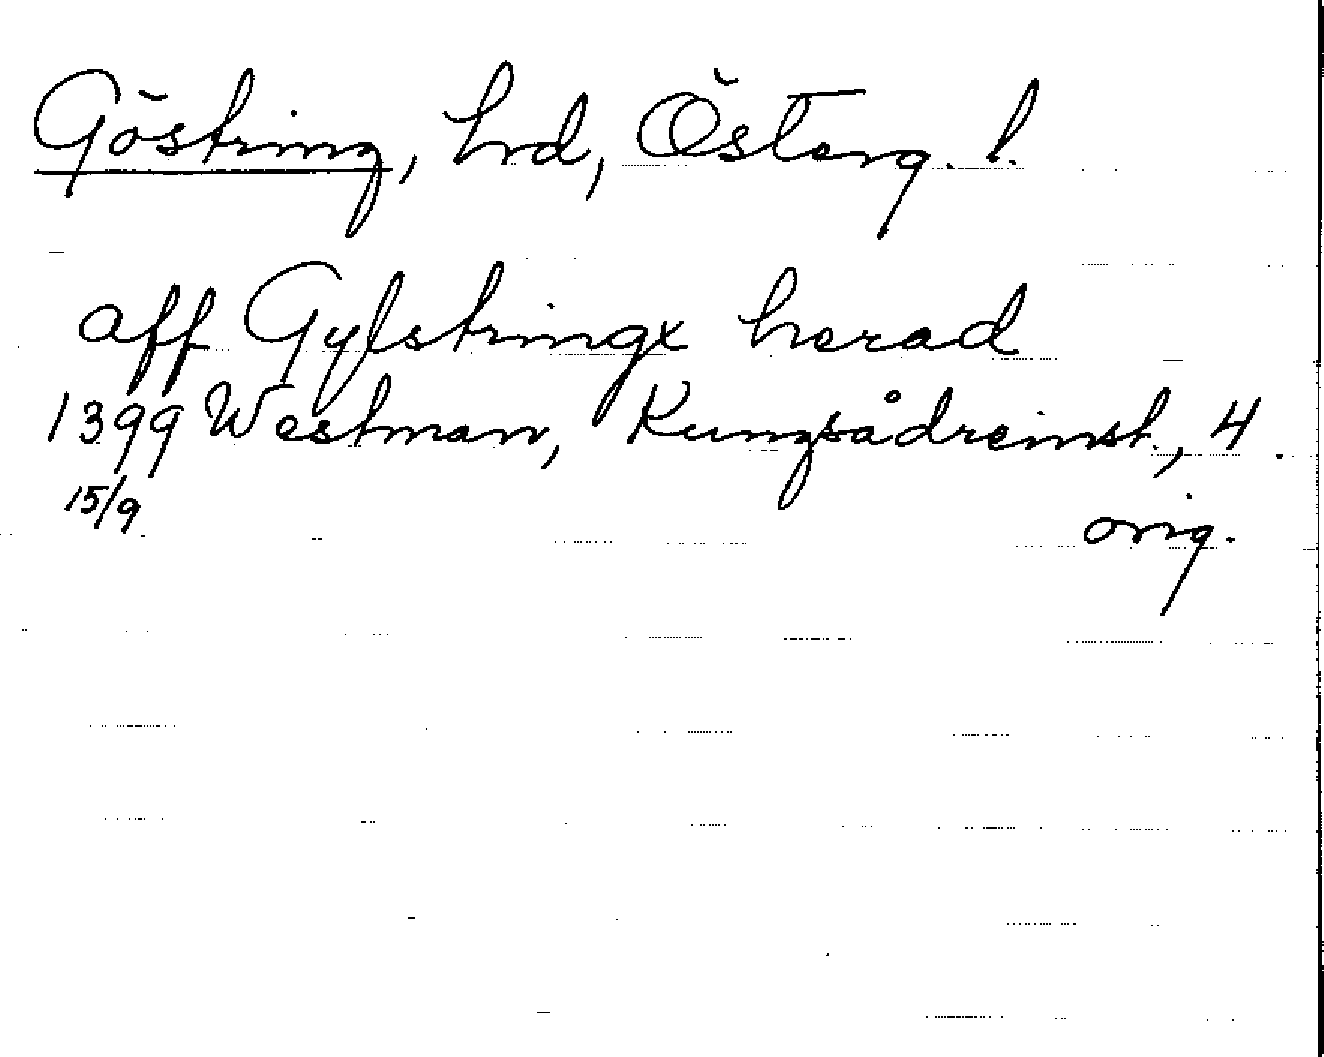 Göstring, hrd, Österg. l.
aff Gylstringx herad
1399 Westman, Kungsådreinst., 4.
15/9 orig.